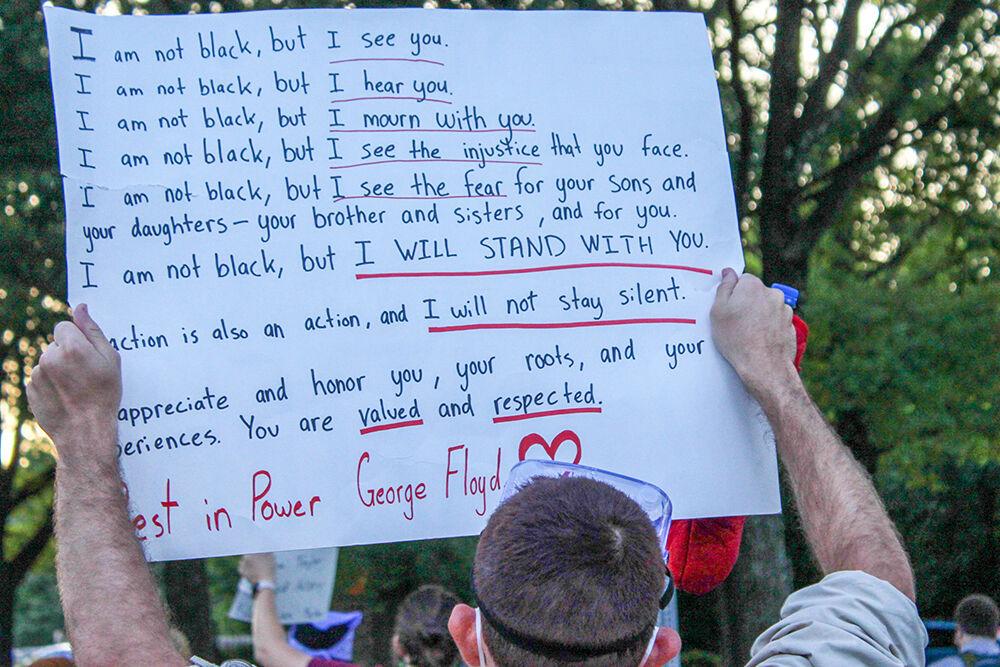 I am not black, but I see you.
I am not black, but I hear you.
I am not black, but I mourn with you.
I am not black, but I see the injustice that you face.
I am not black, but I see the fear for your sons and
your daughters — your brother and sisters, and for you.
I am not black, but I WILL STAND WITH YOU.
action is also an action, and I will not stay silent.
appreciate and honor you, your roots, and your
periences. You are valued and respected.
est in Power George Floyd